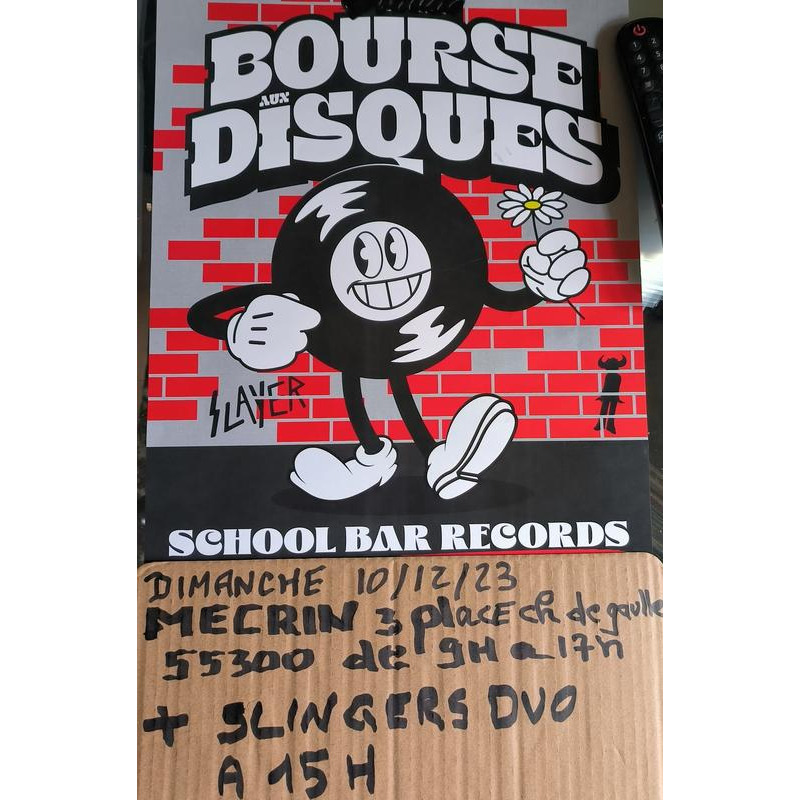 BOURSE
AUX
DISQUES
SLAYER
SCHOOL BAR RECORDS
DIMANCHE 10/12/23
MECRIN 3 place ch de gaulle
55300 de 9H a 17h
+ SLINGERS DUO
A 15H